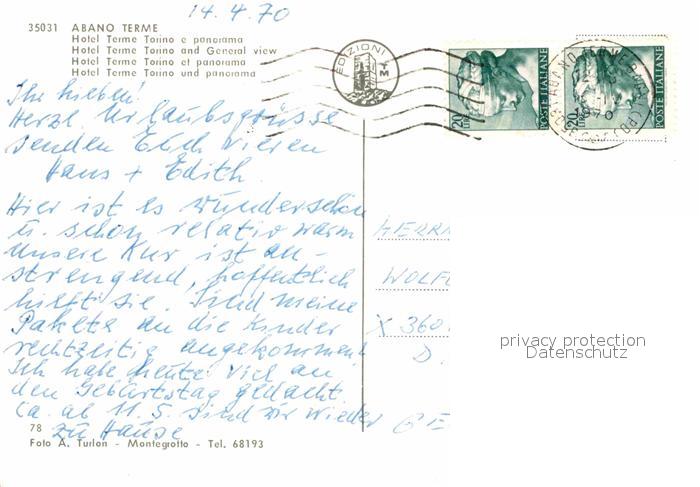 14.4.70
35031 ABANO TERME
Hotel Terme Torino e panorama
Hotel Terme Torino and General view
Hotel Terme Torino et panorama
Hotel Terme Torino und panorama
EDIZIONI
TM
20
LIRE
POSTE ITALIANE
20
LIRE
POSTE ITALIANE
ABANO TERME (PD)
Ihr Lieben!
Herzl. Urlaubsgrüsse
senden Euch vieren
Hans + Edith.
Hier ist es wunderschön
u. schon relativ warm
Unsere Kur ist an-
strengend, hoffentlich
hilft sie. Sind meine
Pakete an die Kinder
rechtzeitig angekommen?
Ich habe heute viel an
den Geburtstag gedacht.
Ca. ab 11.5. sind wir wieder
zu Hause
HERR
WOLF
X 360
D.
78
Foto A. Turlon - Montegrotto - Tel. 68193
privacy protection
Datenschutz